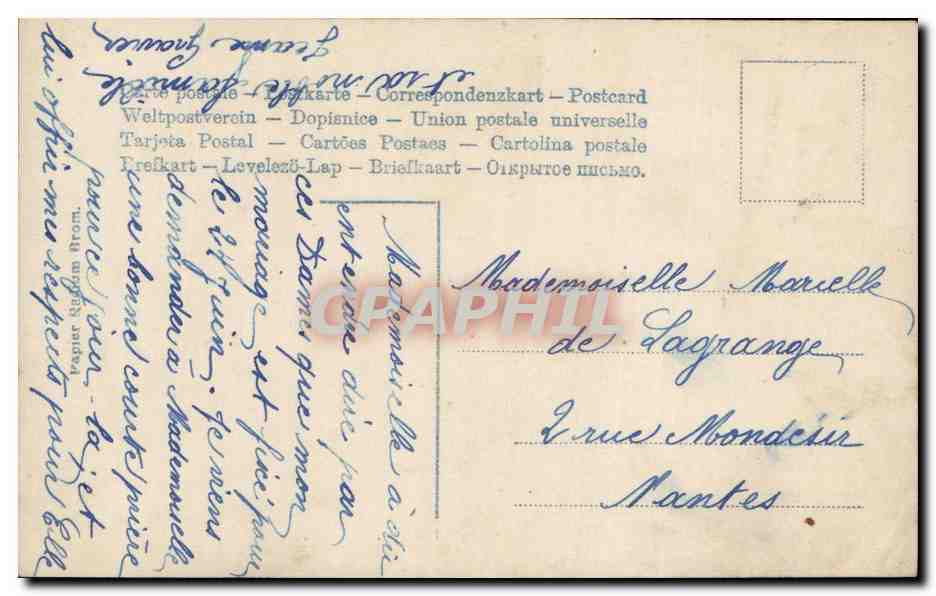 Carte postale – Postkarte – Correspondenzkart – Postcard
Weltpostverein – Dopisnice – Union postale universelle
Tarjeta Postal – Cartões Postaes – Cartolina postale
Brefkart – Levelező-Lap – Briefkaart – Открытое письмо.
Mademoiselle Marcelle
de Lagrange
2 rue Mondésir
Nantes
Mademoiselle à dû
entendre dire par
ces Dames que mon
mariage est fixé pour
le 24 Juin. Je viens
demander à Mademoiselle
une bonne courte prière
pour ce jour-là, et
lui offrir mes respects pour Elle
et sa noble famille
Jeanne
Papier Radium Brom.
CRAPHIL